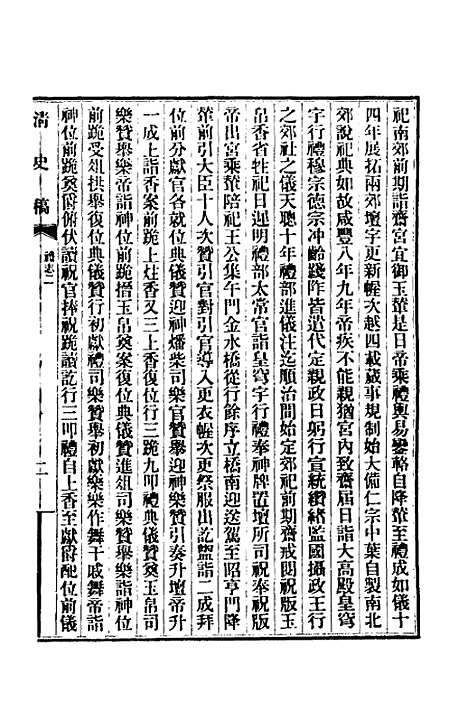 祀南郊前期詣齋宮宜御玉輦是日帝乘禮輿易鑾輅自降輦至禮成如儀十
四年展拓兩郊壇宇更新幄次越四載蕆事規制始大備仁宗中葉自製南北
郊說祀典如故咸豐八年九年帝疾不能親猶宮內致齋屆日詣大高殿皇穹
宇行禮穆宗德宗沖齡踐阼皆遣代定親政日躬行宣統纘緒監國攝政王行
之郊社之儀天聰十年禮部進儀注迄順治間始定郊祀前期齋戒閱祝版玉
帛香省牲祀日迎明禮部太常官詣皇穹宇行禮奉神牌置壇所司祝奉祝版
帝出宮乘輦陪祀王公集午門金水橋從行餘序立橋南迎送駕至昭亨門降
輦前引大臣十人次贊引官對引官導入更衣幄次更祭服出訖盥詣二成拜
位前分獻官各就位典儀贊迎神燔柴司樂官贊舉迎神樂贊引奏升壇帝升
一成上詣香案前跪上炷香又三上香復位行三跪九叩禮典儀贊奠玉帛司
樂贊舉樂帝詣神位前跪搢玉帛奠案復位典儀贊進俎司樂贊舉樂詣神位
前跪受俎拱舉復位典儀贊行初獻禮司樂贊舉初獻樂樂作舞干戚舞帝詣
神位前跪奠爵俯伏讀祝官捧祝跪讀訖行三叩禮自上香至獻爵配位前儀
清史稿
禮志二
二